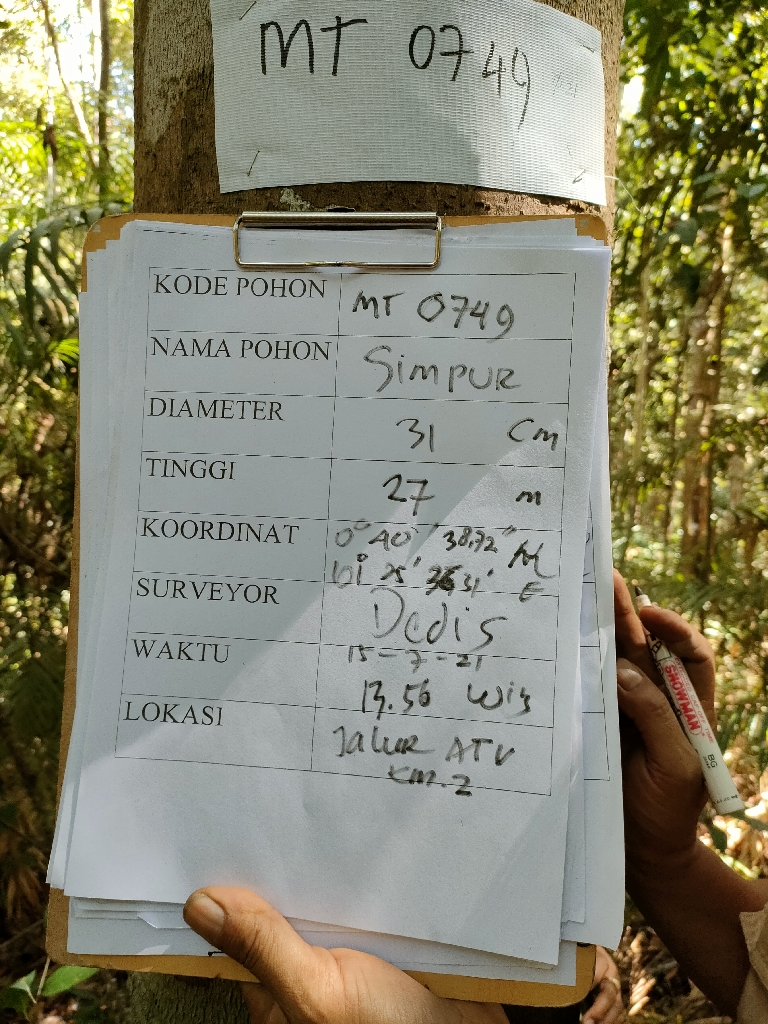 MT 0749
KODE POHON MT 0749
NAMA POHON Simpur
DIAMETER 31 Cm
TINGGI 27 m
KOORDINAT 0° 40' 38,72" N
E
SURVEYOR Dedis
WAKTU 15-7-21
13.56 Wib
LOKASI Jalur ATV
Km.2
SNOWMAN